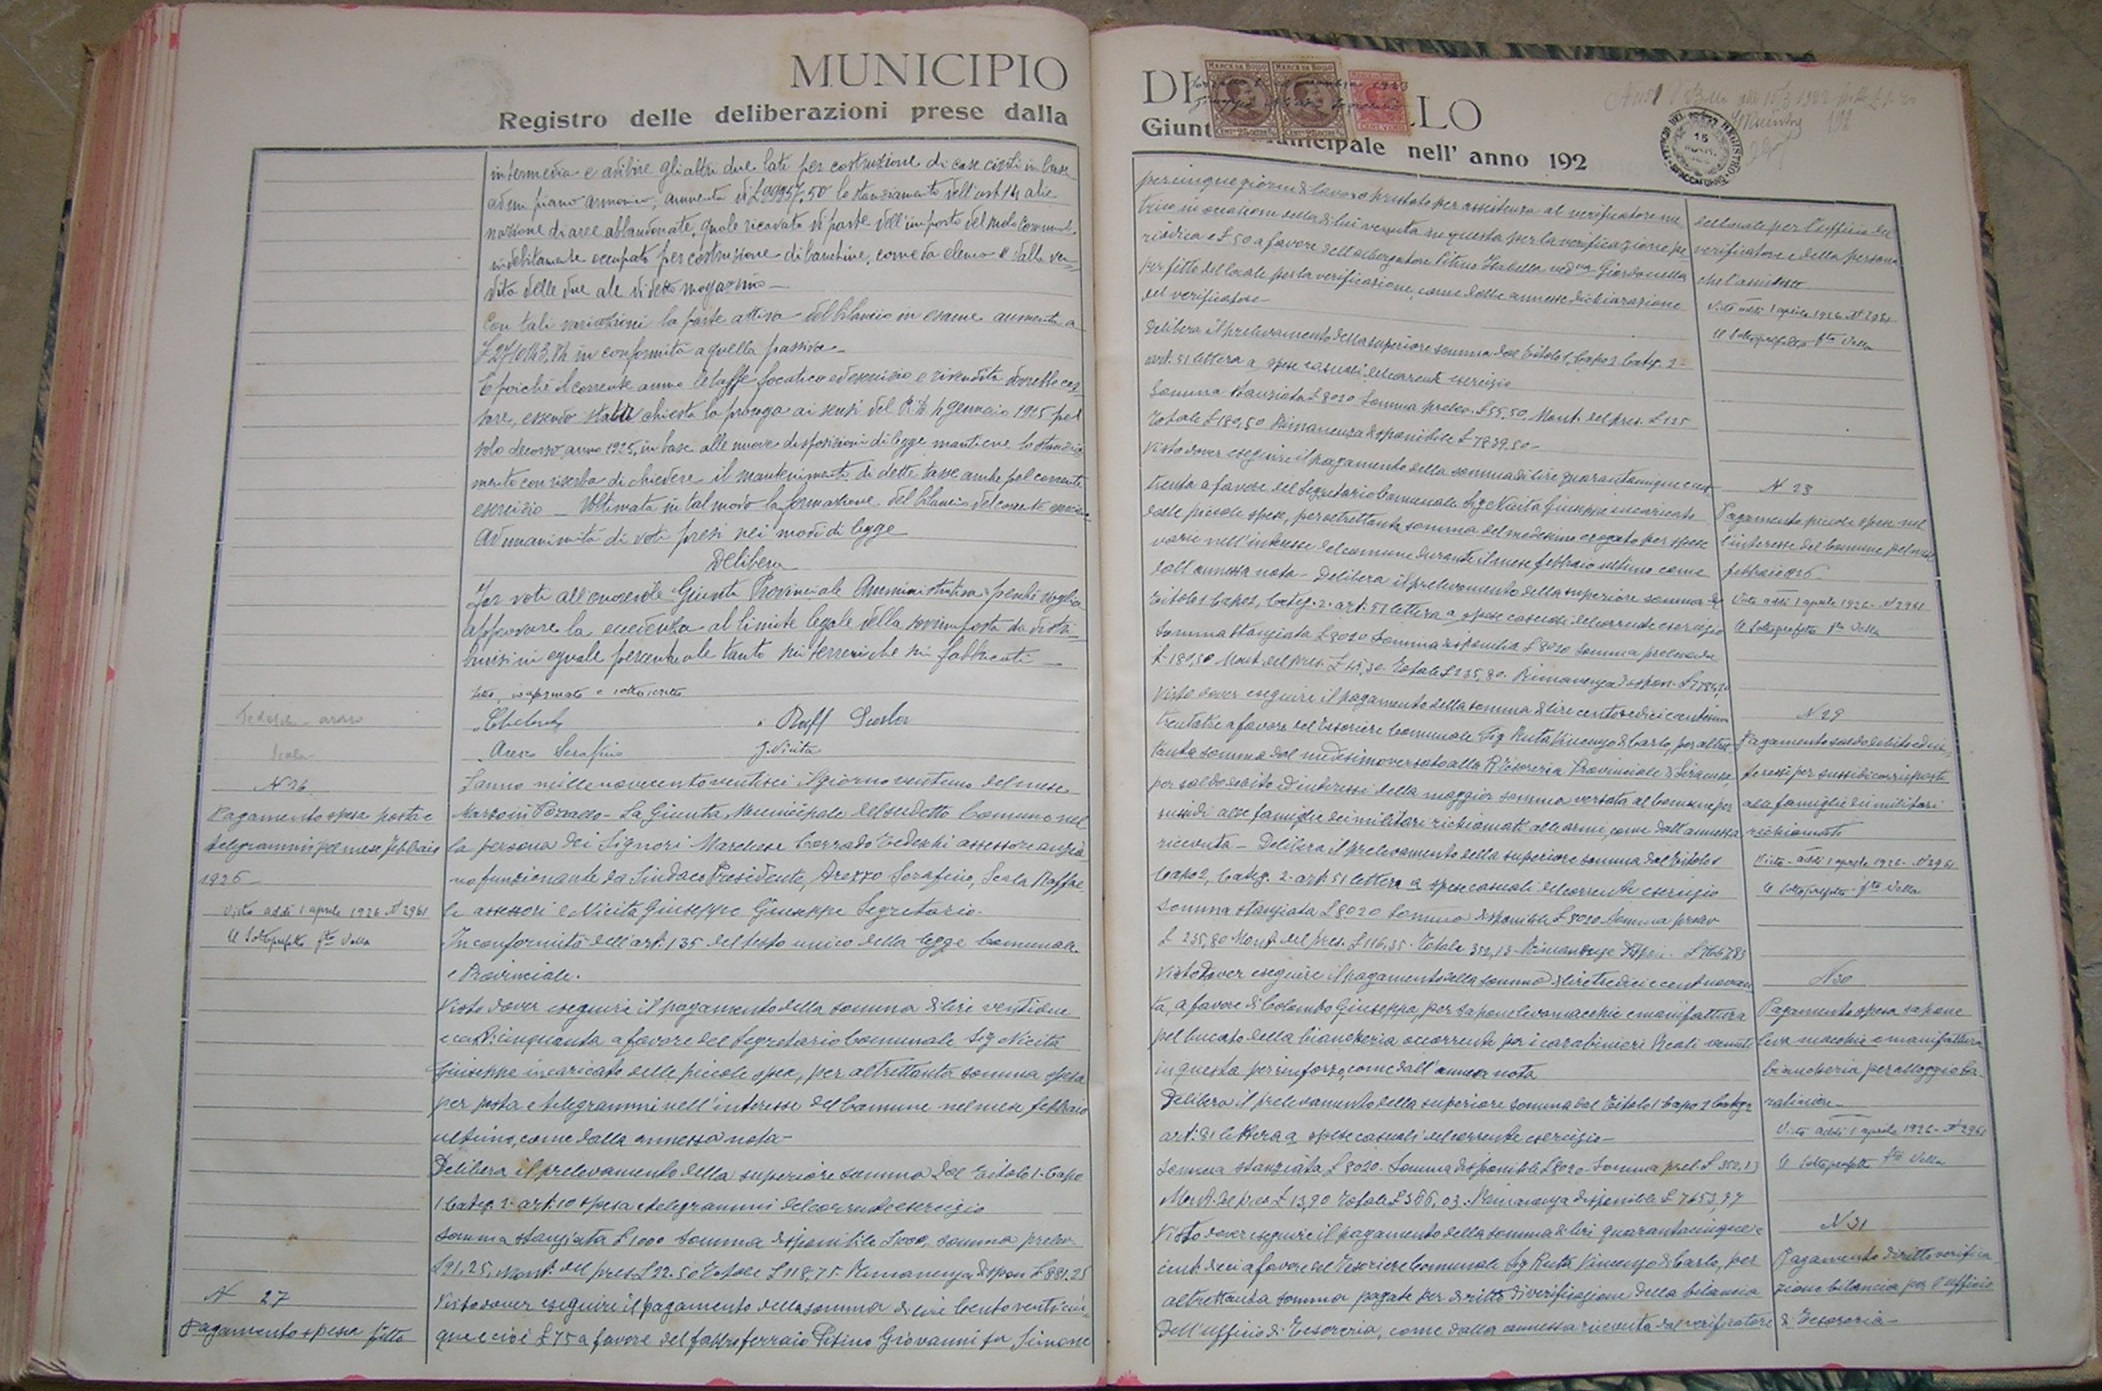 MUNICIPIO
Registro delle deliberazioni prese dalla
intermedia e adibire gli altri due lati per costruzione di case civili in base
ad un piano armonico, aumenta di £ 99957,50 lo stanziamento dell'art 14 alie
nazione di aree abbandonate, quale ricavato di parte dell'importo del suolo Comunale
indebitamente occupato per costruzione di banchine, come da elenco e dalla ven
dita delle due ale di detto magazzino
Con tali variazioni la parte attiva del bilancio in esame aumenta a
in conformità a quella passiva
E poiché il corrente anno le tasse focatico ed esercizio e rivendita dovrebbe ces
sare, essendo stata chiesta la proroga ai sensi del R.D. 4 Gennaio 1925 pel
solo decorso anno 1925, in base alle nuove disposizioni di legge mantiene lo stanzia
mento con riserba di chiedere il mantenimento di dette tasse anche pel corrente
esercizio - Ultimata in tal modo la formazione del bilancio del corrente esercizio
Ad unanimità di voti presi nei modi di legge
Delibera
Far voti all'onorevole Giunta Provinciale Amministrativa perché voglia
approvare la eccedenza al limite legale della sovrimposta da distri
buirsi in eguale percentuale tanto sui terreni che sui fabbricati
Letto, confermato e sottoscritto
Raff Scala
Arezzo Serafino G. Nicita
Tedeschi - Arezzo
Scala
N 26
Pagamento spesa posta e
telegrammi pel mese febbraio
1926
Visto addì 1 aprile 1926 N 2961
Il Sottoprefetto fto Vella
L'anno millenovecentoventisei il giorno ventuno del mese
Marzo in Pozzallo - La Giunta Municipale del suddetto Comune nel
la persona dei Signori Marchese Corrado Tedeschi assessore anzia
no funzionante da Sindaco Presidente, Arezzo Serafino, Scala Raffae
le assessori e Nicita Giuseppe Giuseppe Segretario.
In conformità dell'art. 135 del testo unico della legge Comunale
e Provinciale.
Visto dover eseguire il pagamento della somma di lire ventidue
e cent. cinquanta a favore del Segretario Comunale Sig Nicita
Giuseppe incaricato delle piccole spese, per altrettanta somma spesa
per posta e telegrammi nell'interesse del Comune nel mese febbraio
ultimo, come dalla annessa nota -
Delibera il prelevamento della superiore somma dal Titolo 1. Capo
1 Categ. 2. art. 10 spesa telegrammi del corrente esercizio
Somma stanziata £ 1000 Somma disponibile £ 1000, somma prelev.
£ 91,25. Mont. del pres £ 22.50 Totale £ 118,75. Rimanenza dispon £ 881.25
N 27
Pagamento spesa fitto
Visto dover eseguire il pagamento della somma di lire Cento venticin
que e cioè £ 75 a favore del fabbroferraio Pitino Giovanni fu Simone
DI LLO
Giunta Municipale nell' anno 192
MARCA DA BOLLO MARCA DA BOLLO
per cinque giorni di lavoro prestato per assistenza al verificatore me
trico in occasione della di lui venuta in questa per la verificazione pe
riodica e £ 50 a favore dell'albergatore Pitino Isabella ved. Giordanella
per fitto del locale per la verificazione, come dalle annesse dichiarazione
del verificatore -
dell locale per l'ufficio del
verificatore e della persona
che l'assistette
Visto addì 1 aprile 1926 N 2961
Il Sottoprefetto fto Vella
Delibera il prelevamento della superiore somma dal Titolo 1, Capo 2 Categ. 2-
art. 51 lettera a spese casuali del corrente esercizio
Somma stanziata £ 8020 Somma prelev. £ 55,50. Mont. del pres. £ 125
Totale £ 180,50 Rimanenza disponibile £ 7839,50 -
N 28
Pagamento piccole spese nel
l'interesse del Comune pel mese
febbraio 926
Visto addì 1 aprile 1926 - N 2961
Il Sottoprefetto fto Vella
Visto dover eseguire il pagamento della somma di lire quarantacinque e cent.
trenta a favore del Segretario Comunale Sig Nicita Giuseppe incaricato
delle piccole spese, per altrettanta somma del medesimo erogato per spese
varie nell'interesse del comune durante il mese febbraio ultimo come
dall'annessa nota - Delibera il prelevamento della superiore somma dal
Titolo 1 Capo 2, Categ. 2. art. 51 lettera a spese casuali del corrente esercizio
Somma stanziata £ 8020 Somma disponibile £ 8020 Somma prelevata
£ 180,50 Mont. del pres. £ 45,30. Totale £ 235,80. Rimanenza dispon.
N 29
Pagamento saldo debito ed in
teressi per sussidi corrisposti
alle famiglie dei militari
richiamati
Visto addì 1 aprile 1926 - N 2961
Il Sottoprefetto fto Vella
Visto dover eseguire il pagamento della somma di lire centosedici centesimi
trentatre a favore del Tesoriere Comunale Sig Ruta Vincenzo di Carlo, per altret
tanta somma dal medesimo versato alla R. Tesoreria Provinciale di Siracusa,
per saldo debito ed interessi della maggior somma versata al Comune per
sussidi alle famiglie dei militari richiamati alle armi, come dall'annessa
ricevuta - Delibera il prelevamento della superiore somma dal Titolo 1
Capo 2, Categ. 2. art. 51 lettera a spese casuali del corrente esercizio
Somma stanziata £ 8020 Somma disponibile £ 8020 Somma prelev
£ 235,80 Mont. del pres. £ 116,35. Totale 352,13 - Rimanenza dispon. £ 7667,83
N 30
Pagamento spesa sapone
leva macchie e manifattura
biancheria per alloggio Ca-
rabinieri
Visto addì 1 aprile 1926 - N 2961
Il Sottoprefetto fto Vella
Visto dover eseguire il pagamento della somma di lire tredici e cent novan
ta, a favore di Colombo Giuseppa, per sapone levamacchie e manifattura
pel bucato della biancheria occorrente per i carabinieri Reali venuti
in questa per rinforzo, come dall'annessa nota
Delibera il prelevamento della superiore somma dal Titolo 1 Capo 2 Categ 2
art. 51 lettera a spese casuali del corrente esercizio -
Somma stanziata £ 8020. Somma disponibile £ 8020 - Somma prel. £ 352,13
Mont. del pres £ 13,90 Totale £ 366,03. Rimanenza disponibile £ 7653,97
N 31
Pagamento diritto verifica
zione bilancia per l'ufficio
di Tesoreria -
Visto dover eseguire il pagamento della somma di lire quarantacinque e
cent. dieci a favore del Tesoriere Comunale Sig Ruta Vincenzo di Carlo, per
altrettanta somma pagata per diritto di verificazione della bilancia
dell'ufficio di Tesoreria, come dalla annessa ricevuta del verificatore